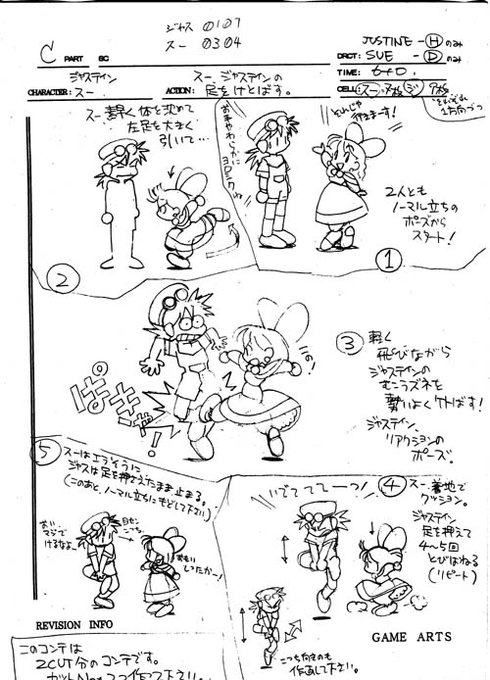 ジャス 0107
スー 0304
C PART SC
JUSTINE - Ⓗのみ
DRCT: SUE - Ⓓのみ
TIME: 6+0.
CHARACTER: ジャスティン
スー
ACTION: スー、ジャスティンの
足をけとばす。
CELL: スー
とりあえず
1方向づつ
それじゃ
行きまーす!
2人とも
ノーマル立ちの
ポーズから
スタート!
①
スー素早く体を
左足を大きく
引いて…
②
③ 軽く
飛びながら
ジャスティンの
むこうズネを
勢いよくケトばす!
ジャスティン、
リアクションの
ポーズ。
④ スー、着地で
クッション。
ジャスティン
足を押えて
4〜5回
とびはねる
(リピート)
いでててーっ!
こっち向きのも
作画して下さい。
⑤ スーはエラそうに
ジャスは足を押さえたまま止まる。
(このあと、ノーマル立ちにもどして下さい)
おい、
マジで
けるなよ…
おもい
しったかー!
REVISION INFO
GAME ARTS
このコンテは
2CUT分のコンテです。